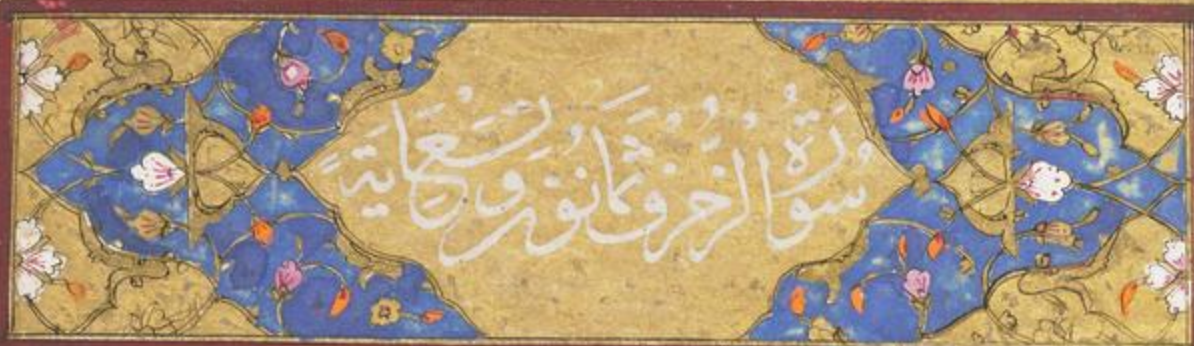 سُورَةُ الزخرف ثمانون وتسع اية